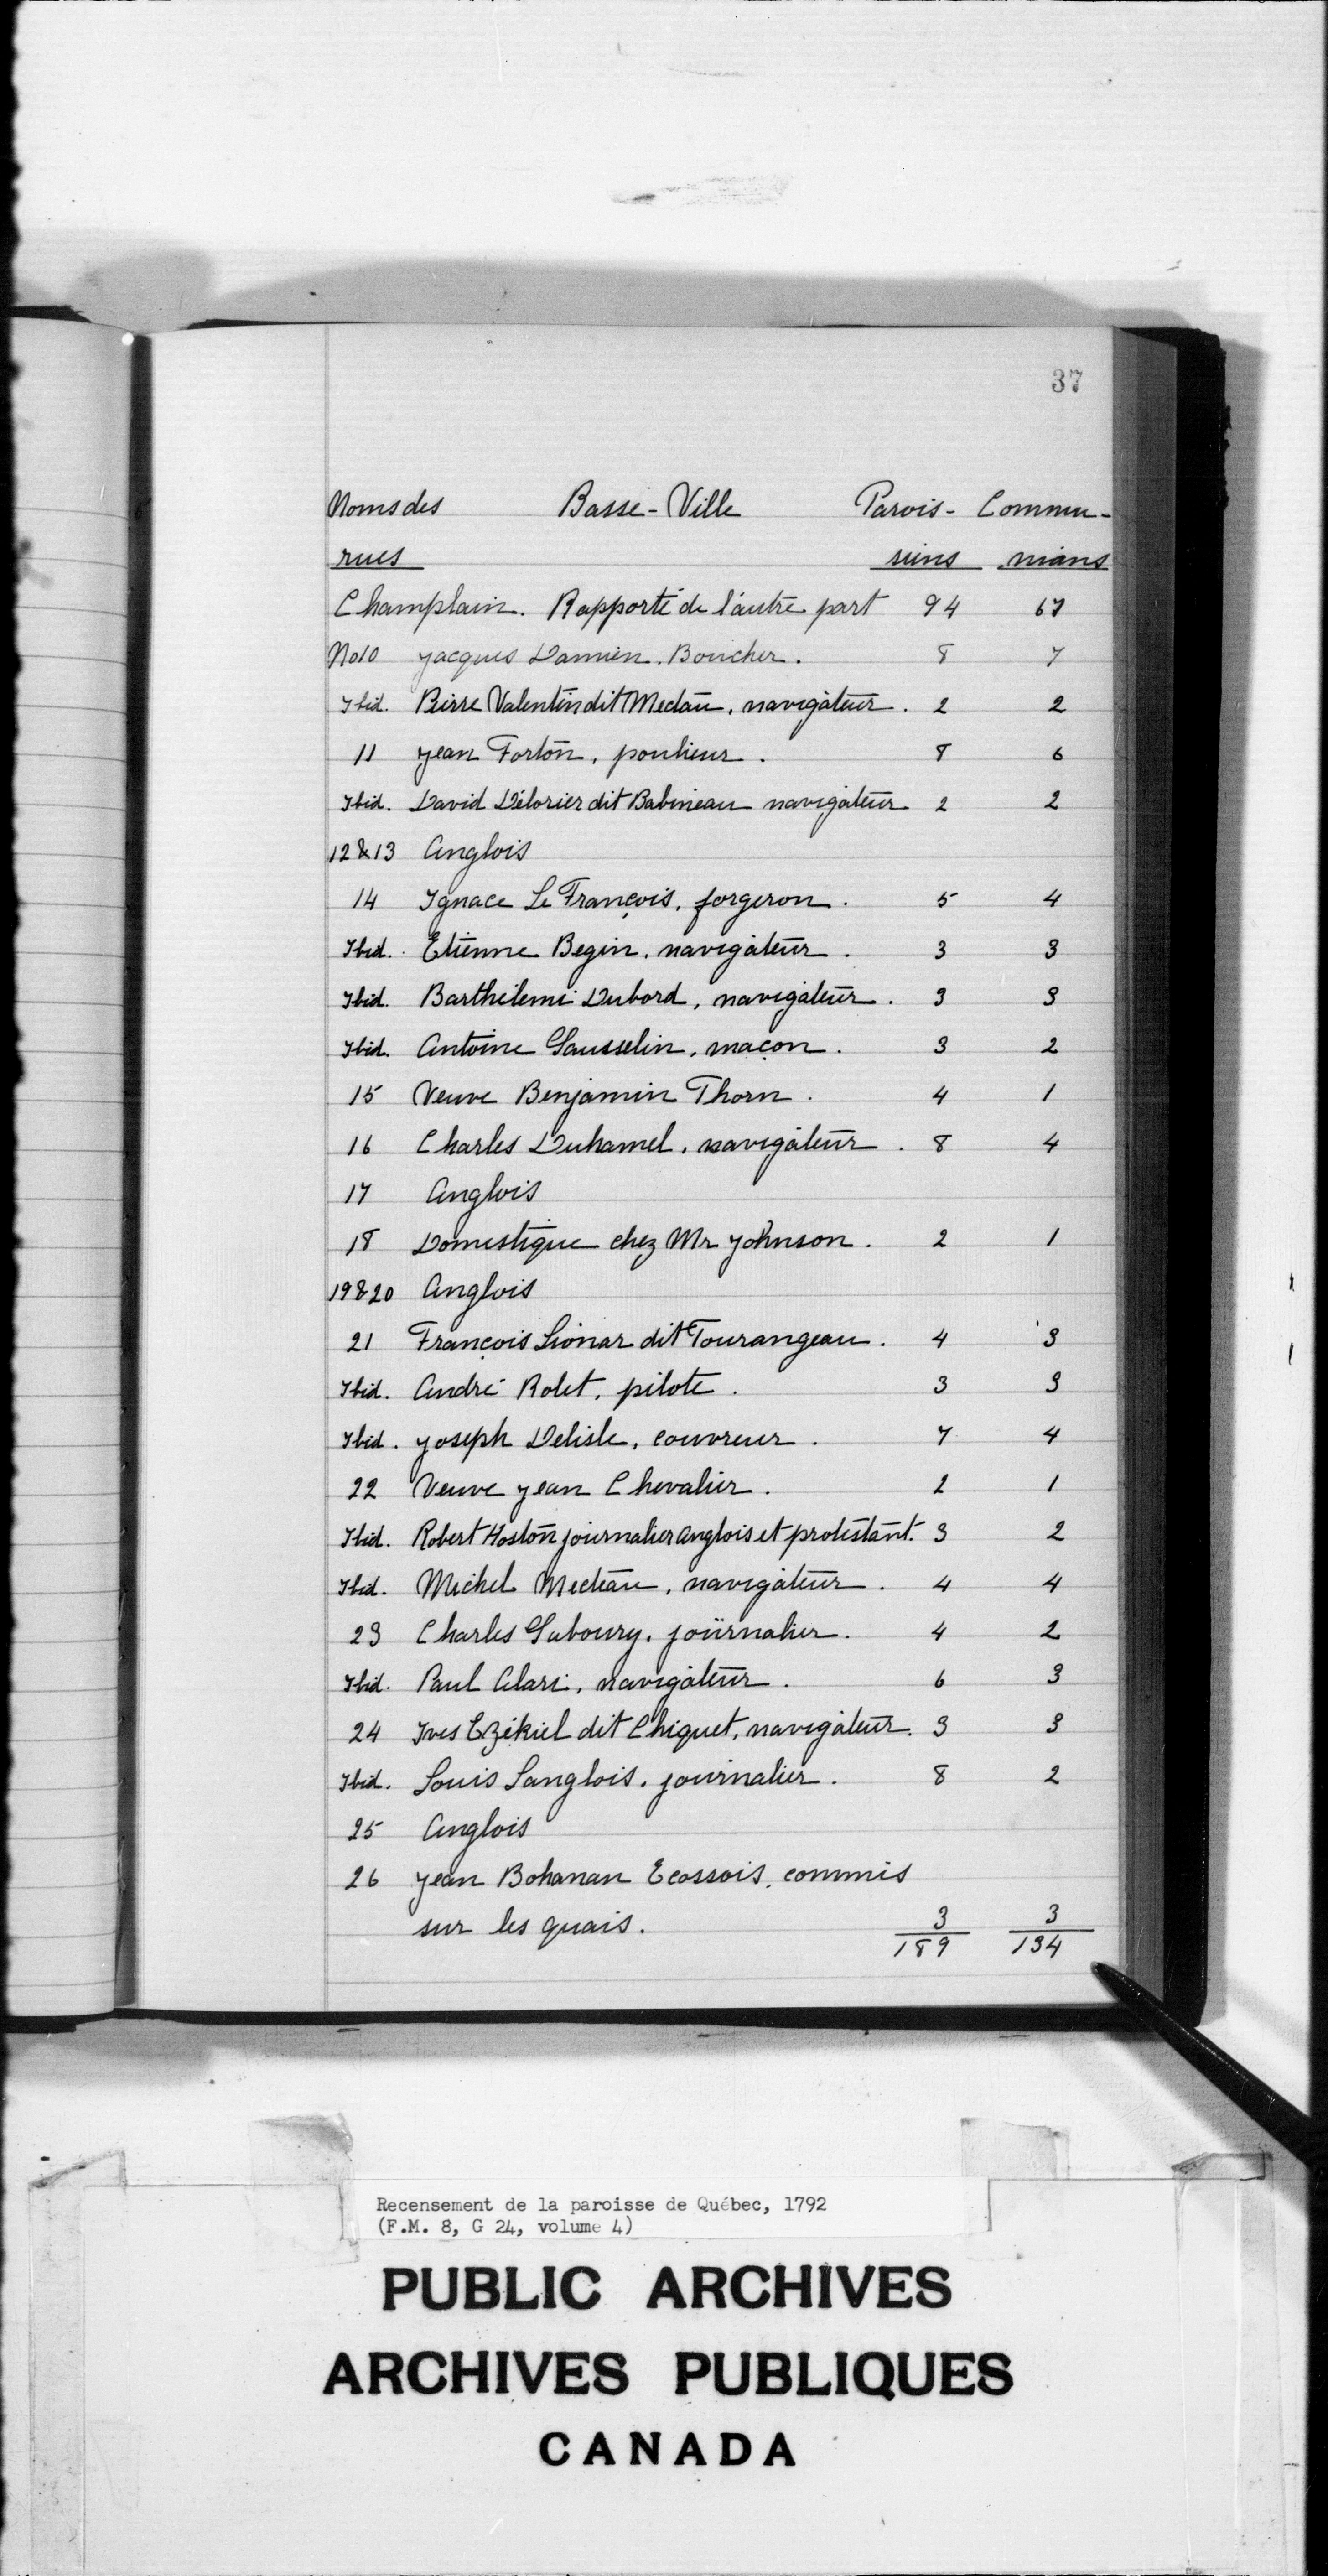 37
Noms des Basse-Ville Parois- Commu-
rues siens nians
Champlain. Rapporté de l'autre part 94 67
No10 Jacques Damien. Boucher. 8 7
Ibid. Pierre Valentin dit Mectau, navigateur. 2 2
11 Jean Forton, poulieur. 8 6
Ibid. David Délorier dit Babineau navigateur 2 2
12 & 13 Anglois
14 Ignace Le François, forgeron. 5 4
Ibid. Etienne Begin, navigateur. 3 3
Ibid. Barthélemi Dubord, navigateur. 3 3
Ibid. Antoine Gausselin, maçon. 3 2
15 Veuve Benjamin Thorn. 4 1
16 Charles Duhamel, navigateur. 8 4
17 Anglois
18 Domestique chez Mr Johnson. 2 1
19 & 20 Anglois
21 François Lionar dit Tourangeau. 4 3
Ibid. André Rolet, pilote. 3 3
Ibid. Joseph Delisle, couvreur. 7 4
22 Veuve Jean Chevalier. 2 1
Ibid. Robert Hoston journalier anglois et protestant. 3 2
Ibid. Michel Mecteau, navigateur. 4 4
23 Charles Gaboury, journalier. 4 2
Ibid. Paul Alari, navigateur. 6 3
24 Ives Ezékiel dit Chiquet, navigateur. 3 3
Ibid. Louis Langlois, journalier. 8 2
25 Anglois
26 Jean Bohanan Ecossois, commis
sur les quais. 3 3
189 134
Recensement de la paroisse de Québec, 1792
(F.M. 8, G 24, volume 4)
PUBLIC ARCHIVES
ARCHIVES PUBLIQUES
CANADA